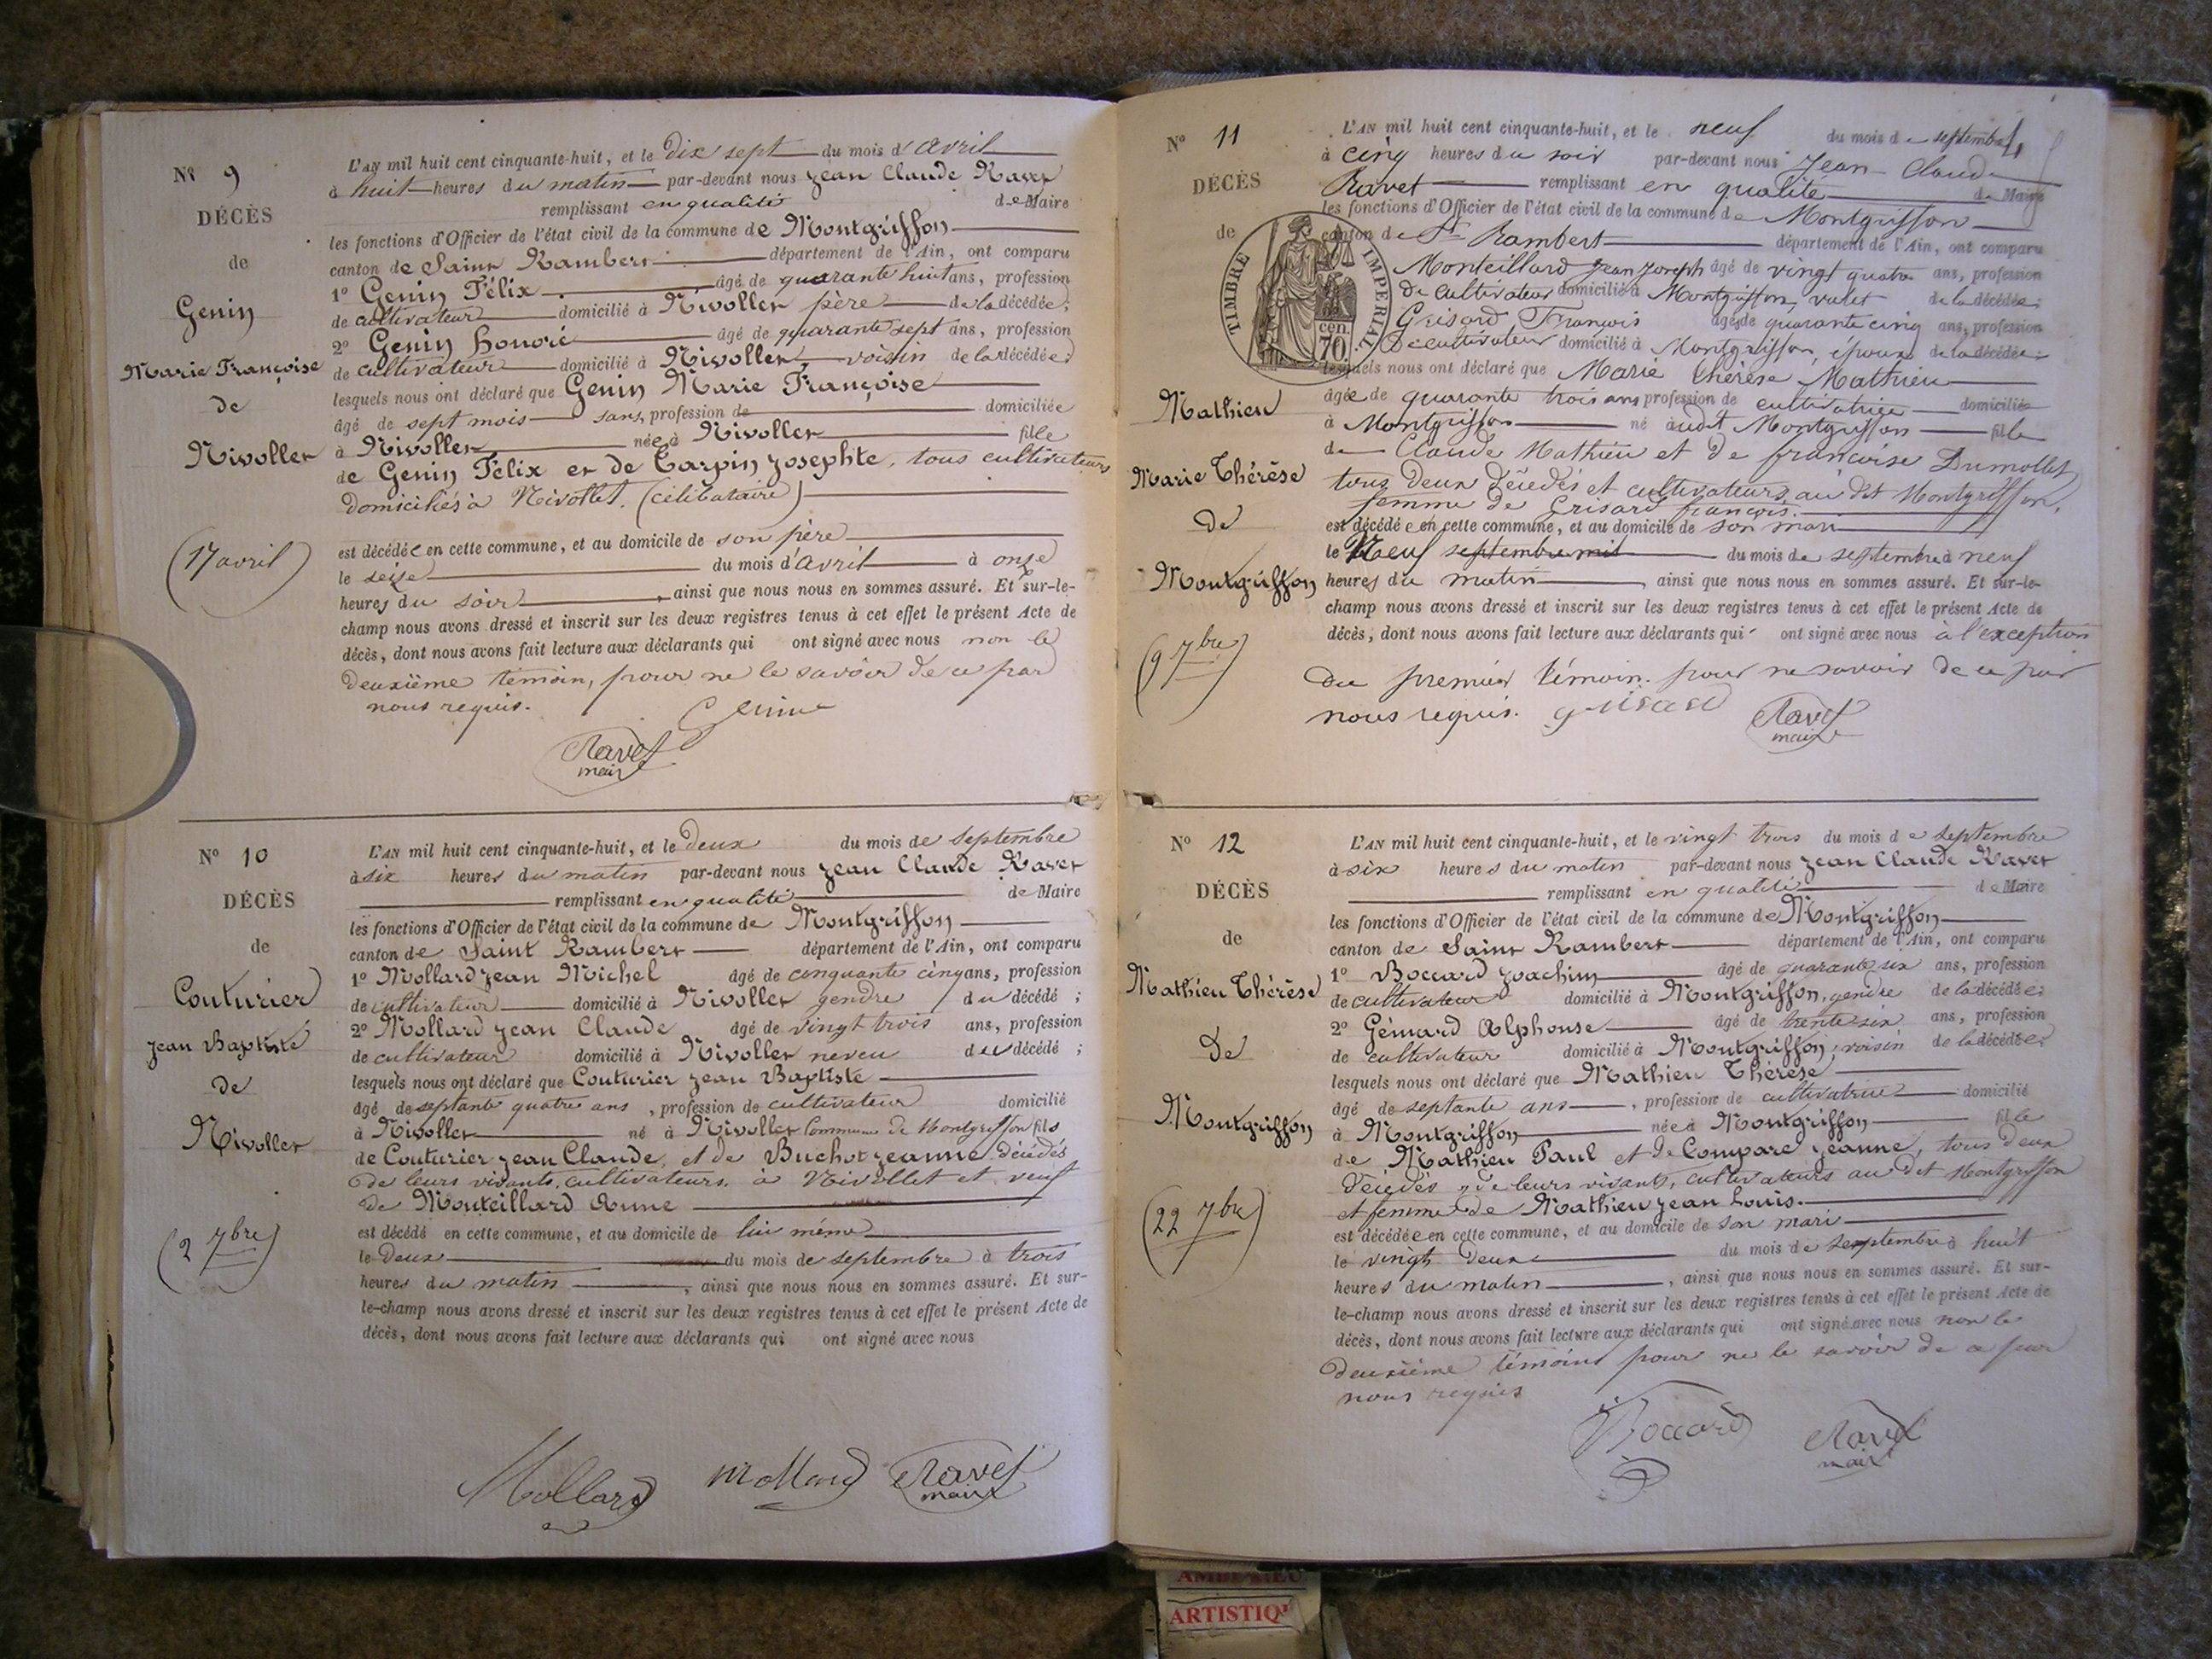 Nº 9
DÉCÈS
de
Genin
Marie Françoise
de
Nivollet
(17 avril)
L'AN mil huit cent cinquante-huit, et le dix sept du mois d'avril
à huit heures du matin par-devant nous Jean Claude Ravet
remplissant en qualité de Maire
les fonctions d'Officier de l'état civil de la commune de Montgriffon
canton de Saint Rambert département de l'Ain, ont comparu
1º Genin Félix âgé de quarante huit ans, profession
de cultivateur domicilié à Nivollet père de la décédée;
2º Genin honoré âgé de quarante sept ans, profession
de cultivateur domicilié à Nivollet, voisin de la décédée;
lesquels nous ont déclaré que Genin Marie Françoise
âgé de sept mois sans profession de domiciliée
à Nivollet née à Nivollet fille
de Genin Félix et de Carpin Josephte, tous cultivateurs
domiciliés à Nivollet. (célibataire)
est décédée en cette commune, et au domicile de son père
le seize du mois d'avril à onze
heures du soir, ainsi que nous nous en sommes assuré. Et sur-le-
champ nous avons dressé et inscrit sur les deux registres tenus à cet effet le présent Acte de
décès, dont nous avons fait lecture aux déclarants qui ont signé avec nous non le
deuxième témoin, pour ne le savoir de ce par
nous requis.
Genin
Ravet
maire
Nº 10
DÉCÈS
de
Couturier
Jean Baptiste
de
Nivollet
(2 7bre)
L'AN mil huit cent cinquante-huit, et le deux du mois de septembre
à six heures du matin par-devant nous Jean Claude Ravet
remplissant en qualité de Maire
les fonctions d'Officier de l'état civil de la commune de Montgriffon
canton de Saint Rambert département de l'Ain, ont comparu
1º Mollard Jean Michel âgé de cinquante cinq ans, profession
de cultivateur domicilié à Nivollet gendre du décédé;
2º Mollard Jean Claude âgé de vingt trois ans, profession
de cultivateur domicilié à Nivollet neveu du décédé;
lesquels nous ont déclaré que Couturier Jean Baptiste
âgé de septante quatre ans, profession de cultivateur domicilié
à Nivollet né à Nivollet Commune de Montgriffon fils
de Couturier Jean Claude, et de Buchot Jeanne décédés
de leurs vivants, cultivateurs à Nivollet et veuf
de Monteillard Anne
est décédé en cette commune, et au domicile de lui même
le deux du mois de septembre à trois
heures du matin, ainsi que nous nous en sommes assuré. Et sur-
le-champ nous avons dressé et inscrit sur les deux registres tenus à cet effet le présent Acte de
décès, dont nous avons fait lecture aux déclarants qui ont signé avec nous
Mollard Mollard Ravet
maire
Nº 11
DÉCÈS
de
Mathieu
Marie Thérèse
de
Montgriffon
(9 7bre)
TIMBRE IMPERIAL
70 cen.
L'AN mil huit cent cinquante-huit, et le neuf du mois de septembre
à cinq heures du soir par-devant nous Jean Claude
Ravet remplissant en qualité de Maire
les fonctions d'Officier de l'état civil de la commune de Montgriffon
canton de St Rambert département de l'Ain, ont comparu
Monteillard Jean Joseph âgé de vingt quatre ans, profession
de cultivateur domicilié à Montgriffon, valet de la décédée;
Grisard François âgé de quarante cinq ans, profession
de cultivateur domicilié à Montgriffon, époux de la décédée;
lesquels nous ont déclaré que Marie thérèse Mathieu
âgée de quarante trois ans profession de cultivatrice domiciliée
à Montgriffon né audit Montgriffon fille
de Claude Mathieu et de françoise Dumollet
tous deux décédés et cultivateurs au dit Montgriffon,
femme de Grisard françois.
est décédée en cette commune, et au domicile de son mari
le Neuf septembre mil du mois de septembre à neuf
heures du matin, ainsi que nous nous en sommes assuré. Et sur-le-
champ nous avons dressé et inscrit sur les deux registres tenus à cet effet le présent Acte de
décès, dont nous avons fait lecture aux déclarants qui ont signé avec nous à l'exception
du premier témoin pour ne savoir de ce par
nous requis. grisard Ravet
maire
Nº 12
DÉCÈS
de
Mathieu Thérèse
de
Montgriffon
(22 7bre)
L'AN mil huit cent cinquante-huit, et le vingt trois du mois de septembre
à six heures du matin par-devant nous Jean Claude Ravet
remplissant en qualité de Maire
les fonctions d'Officier de l'état civil de la commune de Montgriffon
canton de Saint Rambert département de l'Ain, ont comparu
1º Boccard Joachim âgé de quarante six ans, profession
de cultivateur domicilié à Montgriffon, gendre de la décédée;
2º Gémard Alphonse âgé de trente six ans, profession
de cultivateur domicilié à Montgriffon, voisin de la décédée;
lesquels nous ont déclaré que Mathieu Thérèse
âgé de septante ans, profession de cultivatrice domicilié
à Montgriffon née à Montgriffon fille
de Mathieu Paul et de Compare Jeanne, tous deux
décédés, de leurs vivants, cultivateurs au dit Montgriffon
et femme de Mathieu Jean Louis.
est décédée en cette commune, et au domicile de son mari
le vingt deux du mois de septembre à huit
heures du matin, ainsi que nous nous en sommes assuré. Et sur-
le-champ nous avons dressé et inscrit sur les deux registres tenus à cet effet le présent Acte de
décès, dont nous avons fait lecture aux déclarants qui ont signé avec nous non le
deuxième témoins pour ne le savoir de ce par
nous requis
Boccard Ravet
maire
ARTISTIQ